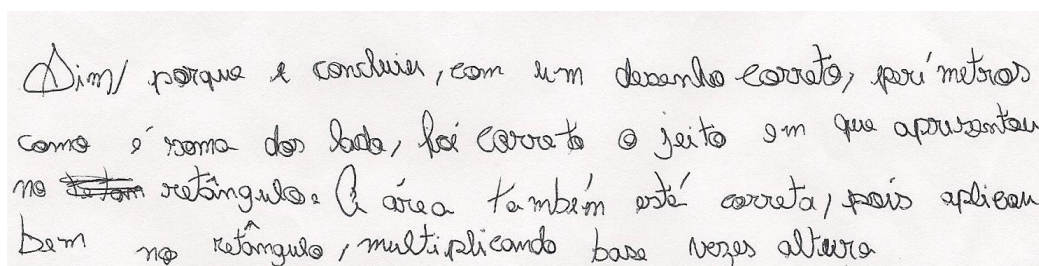 Sim, porque e concluiu, com um desenho correto, perímetros
como é soma dos lado, foi correto o jeito em que apresentou
no retângulo. A área também está correta, pois aplicou
bem no retângulo, multiplicando base vezes altura